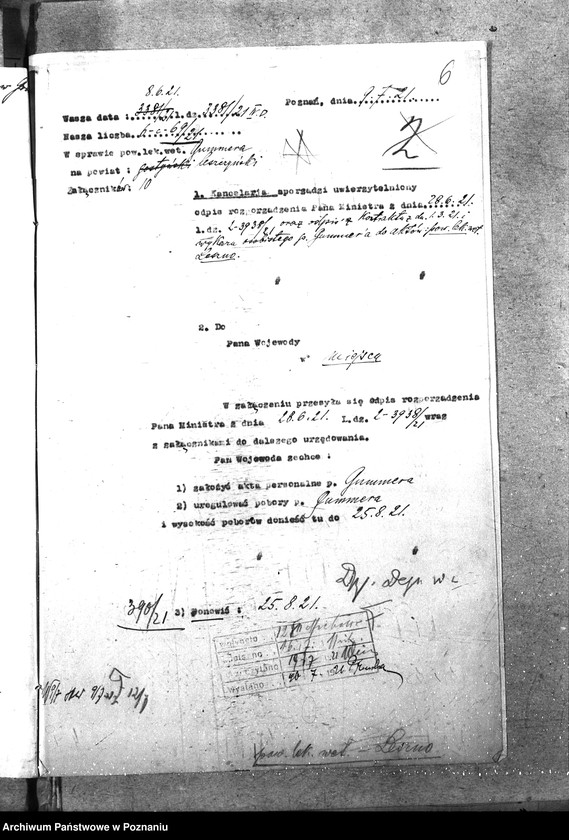 6
8.6.21.
Poznań, dnia 9.7.21.
Wasza data : l.dz. 2381/21 V.D
Nasza liczba
W sprawie pow.lek.wet. Gummera
na powiat : gostyński leszczyński
Załączników: 10
2
1. Kancelaria sporządzi uwierzytelniony
odpis rozporządzenia Pana Ministra z dnia 28.6.21.
l.dz. 2-3938/21 oraz odpis z kontraktu z dn. 1.3.21. i
wykazu osobistego p. Gummera do aktów: pow. lek. wet.
Leszno.
2. Do
Pana Wojewody
w miejscu
W załączeniu przesyła się odpis rozporządzenia
Pana Ministra z dnia 28.6.21. L.dz. 2-3938/21 wraz
z załącznikami do dalszego urzędowania.
Pan Wojewoda zechce :
1) założyć akta personalne p. Gummera
2) uregulować pobory p. Gummera
i wysokość poborów donieść tu do 25.8.21.
Dyr. Dep. w z
390/21 3) Ponowić : 25.8.21.
wpłynęło
wpisano
sprawdzono 19 7 21
wysłano 20. 7. 21
pow. lek. wet. - Leszno
Archiwum Państwowe w Poznaniu